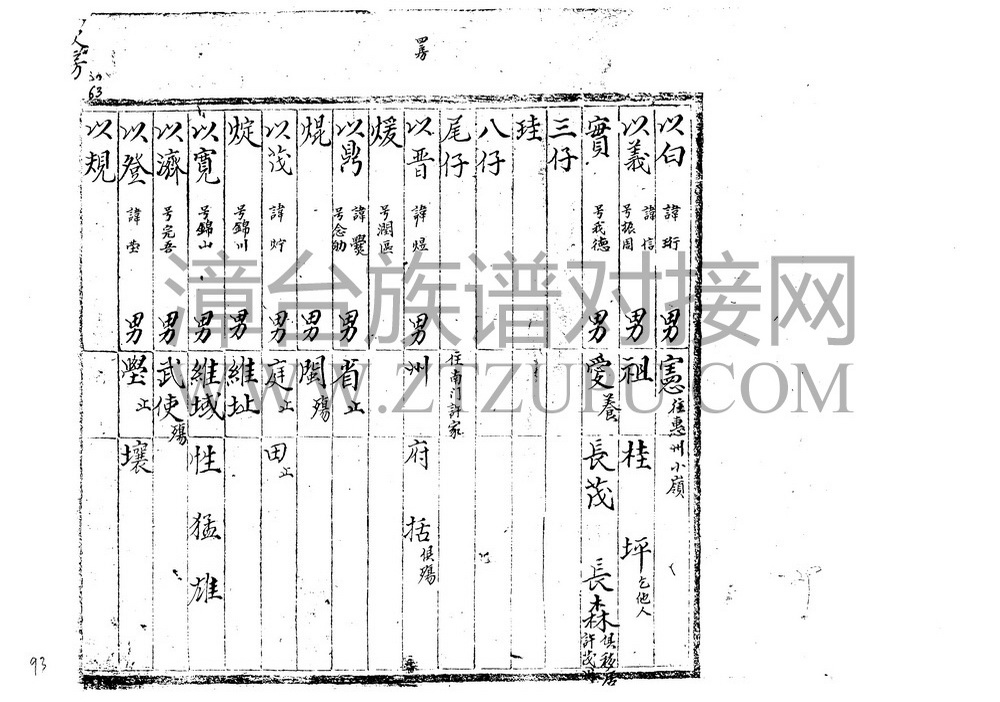 四房
63
以白 諱珩 男 憲 往惠州小嶺
以義 諱信 号振周 男 祖 桂 坪 乞他人
實 号我德 男 愛養 長茂 長森 俱移居
三仔
珪
八仔
尾仔 往南门許家
以晋 諱煜 男 州 府 括 俱殤
煖 号潤區
以鼎 諱爨 号念劬 男 省止
焜 男 閩殤
以茂 諱炉 男 庭止 田止
烶 号錦川 男 維址
以寛 号錦山 男 維域 性 猛 雄
以濟 号完吾 男 武使殤
以登 諱堂 男 壂止 壤
以規
93
漳台族谱对接网
WWW.ZTZUPU.COM